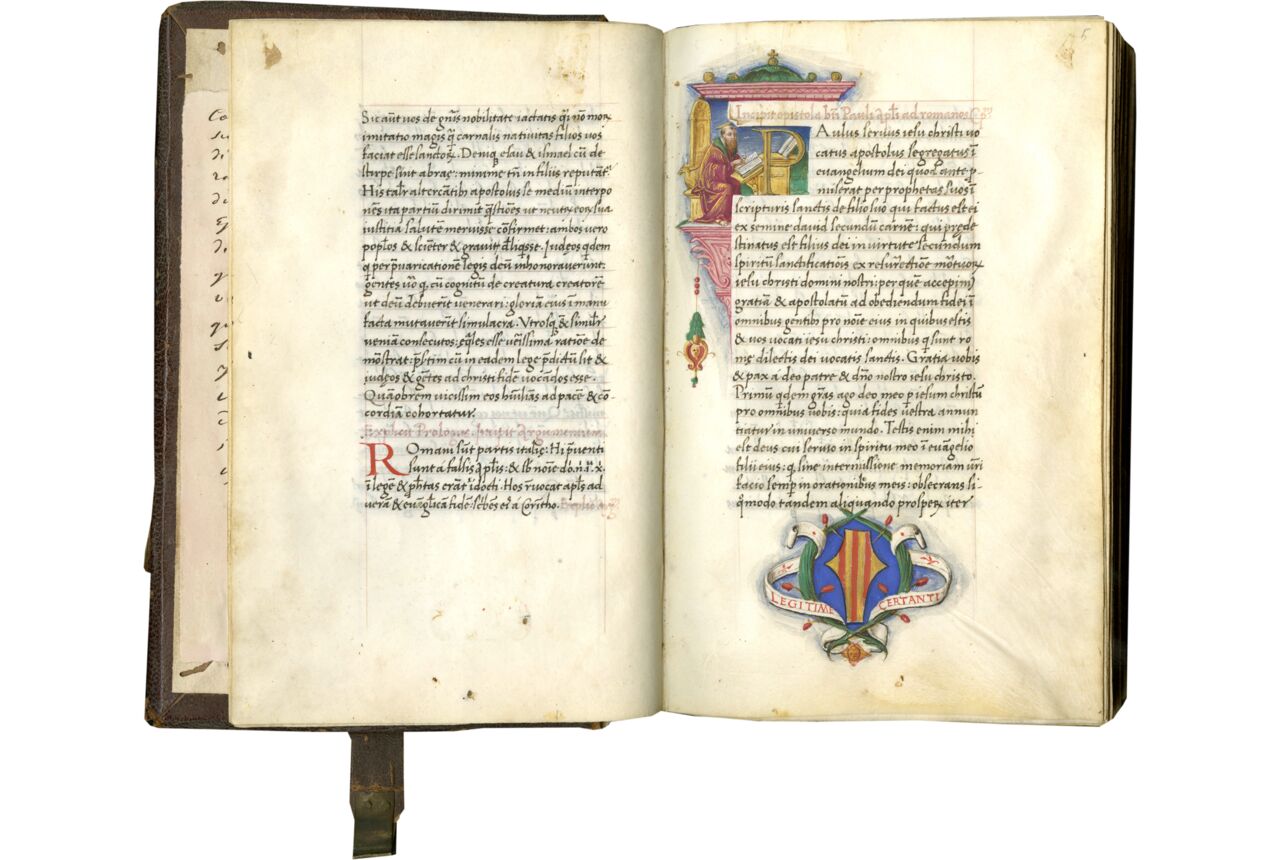 Sic aut vos de gn̄is nobilitate iactatis q̄i nō mox
imitatio magis q̄ carnalis nativitas filios vos
faciat esse sanctox. Deniq̢ esau & ismael cū de
stirpe sint abrae: minime tn̄ in filiis reputant᷑
His talr̄ altercātib apostolus se mediū interpo
nēs ita partiū dirimit q̄stiōes ut neutx eox sua
iustitia salute meruisse cōfirmet: ambos vero
pop̄los & sciēter & gravit᷑ d̄liq̄sse. Iudeos q̄dem
q̢ per p̄varicationē legis deū inhonoraverint:
gentes vo q̢ cū cognitū de creatura creatorē
ut deū debuerīt venerari: gloriā eius ī manu
facta mutaverīt simulacra. Vtrosq̢ & similr̄
veniam consecutos: eq̄les esse verissima ratioē de
mōstrat: p̄sertim cū in eadem lege p̄dictū sit &
iudeos & gētes ad christi fidē vocādos esse.
Quāobrem vicissim eos hūiliās ad pacē & cō-
cordiā cohortatur.
Explicit Prologus. Incipit Argumentum.
Romani sūt partis italię: Hi p̄venti
sunt a falsis ap̄lis: & sb̄ noīe dō.n̄.i᷑.x.
ī legē & p̄hētas erāt īdocti. Hos revocat ap̄ls ad
verā & evāglicā fidē sc̄bēs ei a Corītho. Explic
5
Incipit epistola bt̄i Pauli ap̄li ad romanos
PAulus servus iesu christi vo
catus apostolus segregatus ī
evangelium dei quod ante p
miserat per prophetas suos ī
scripturis sanctis de filio suo qui factus est ei
ex semine david secundū carnē: qui prede
stinatus est filius dei in virtute secundum
spiritū sanctificatiōis ex resurrectiōe mortuox
iesu christi domini nostri: per quē accepim᷒
gratiā & apostolatū ad obediendum fidei ī
omnibus gentib᷒ pro noīe eius in quibus estis
& vos vocati iesu christi: omnibus q̄ sunt ro
mę dilectis dei vocatis sanctis. Gratia vobis
& pax a deo patre & dn̄o nostro iesu christo.
Primū q̄dem grās ago deo meo p iesum christū
pro omībus vobis: quia fides vestra annun
tiatur in universo mundo. Testis enim mihi
est deus cui servio in spiritu meo ī evāgelio
filii eius: q̢ sine intermissione memoriam vr̄i
facio semp̄ in orationibus meis: obsecrans si
quomodo tandem aliquando prosperx iter
LEGITIME CERTANTI